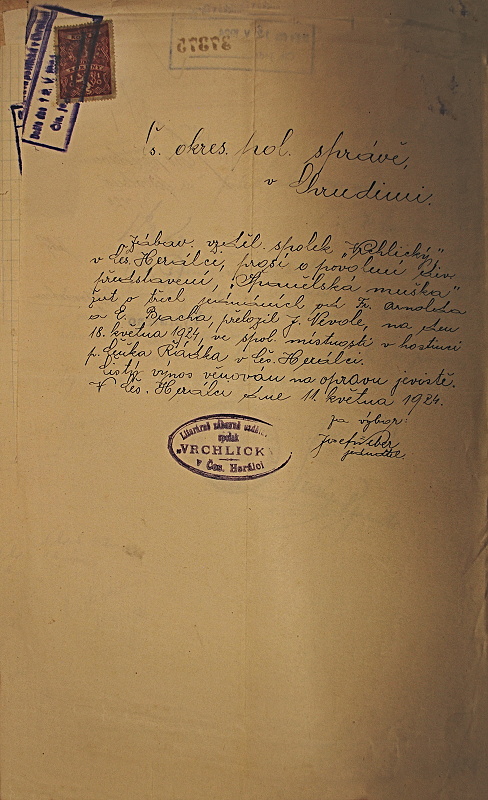 Čs. okres. pol. správě,
v Chrudimi.
Zábav. vzděl. spolek „Vrchlický“
v Čes. Herálci, prosí o povolení div.
představení, „Španělská muška“
žert o třech jednáních od Fr. Arnolda
a E. Bacha, přeložil J. Vévole, na den
18. května 1924, ve spol. místnosti v hostinci
p. Čeňka Řádka v Čes. Herálci.
Čistý výnos věnován na opravu jeviště.
V Čes. Herálci dne 11. května 1924.
za výbor:
Josef
jednatel.
Literárně zábavně vzděl.
spolek
„VRCHLICK
v Čes. Herálci